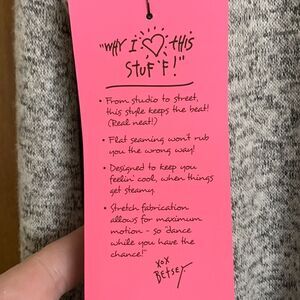 "WHY I ♡ this
STUFF!"
• From studio to street,
this style keeps the beat!
(Real neat!)
• Flat seaming won't rub
you the wrong way!
• Designed to keep you
feelin' cool, when things
get steamy.
• Stretch fabrication
allows for maximum
motion - so dance
while you have the
chance!"
xox
BETSEY